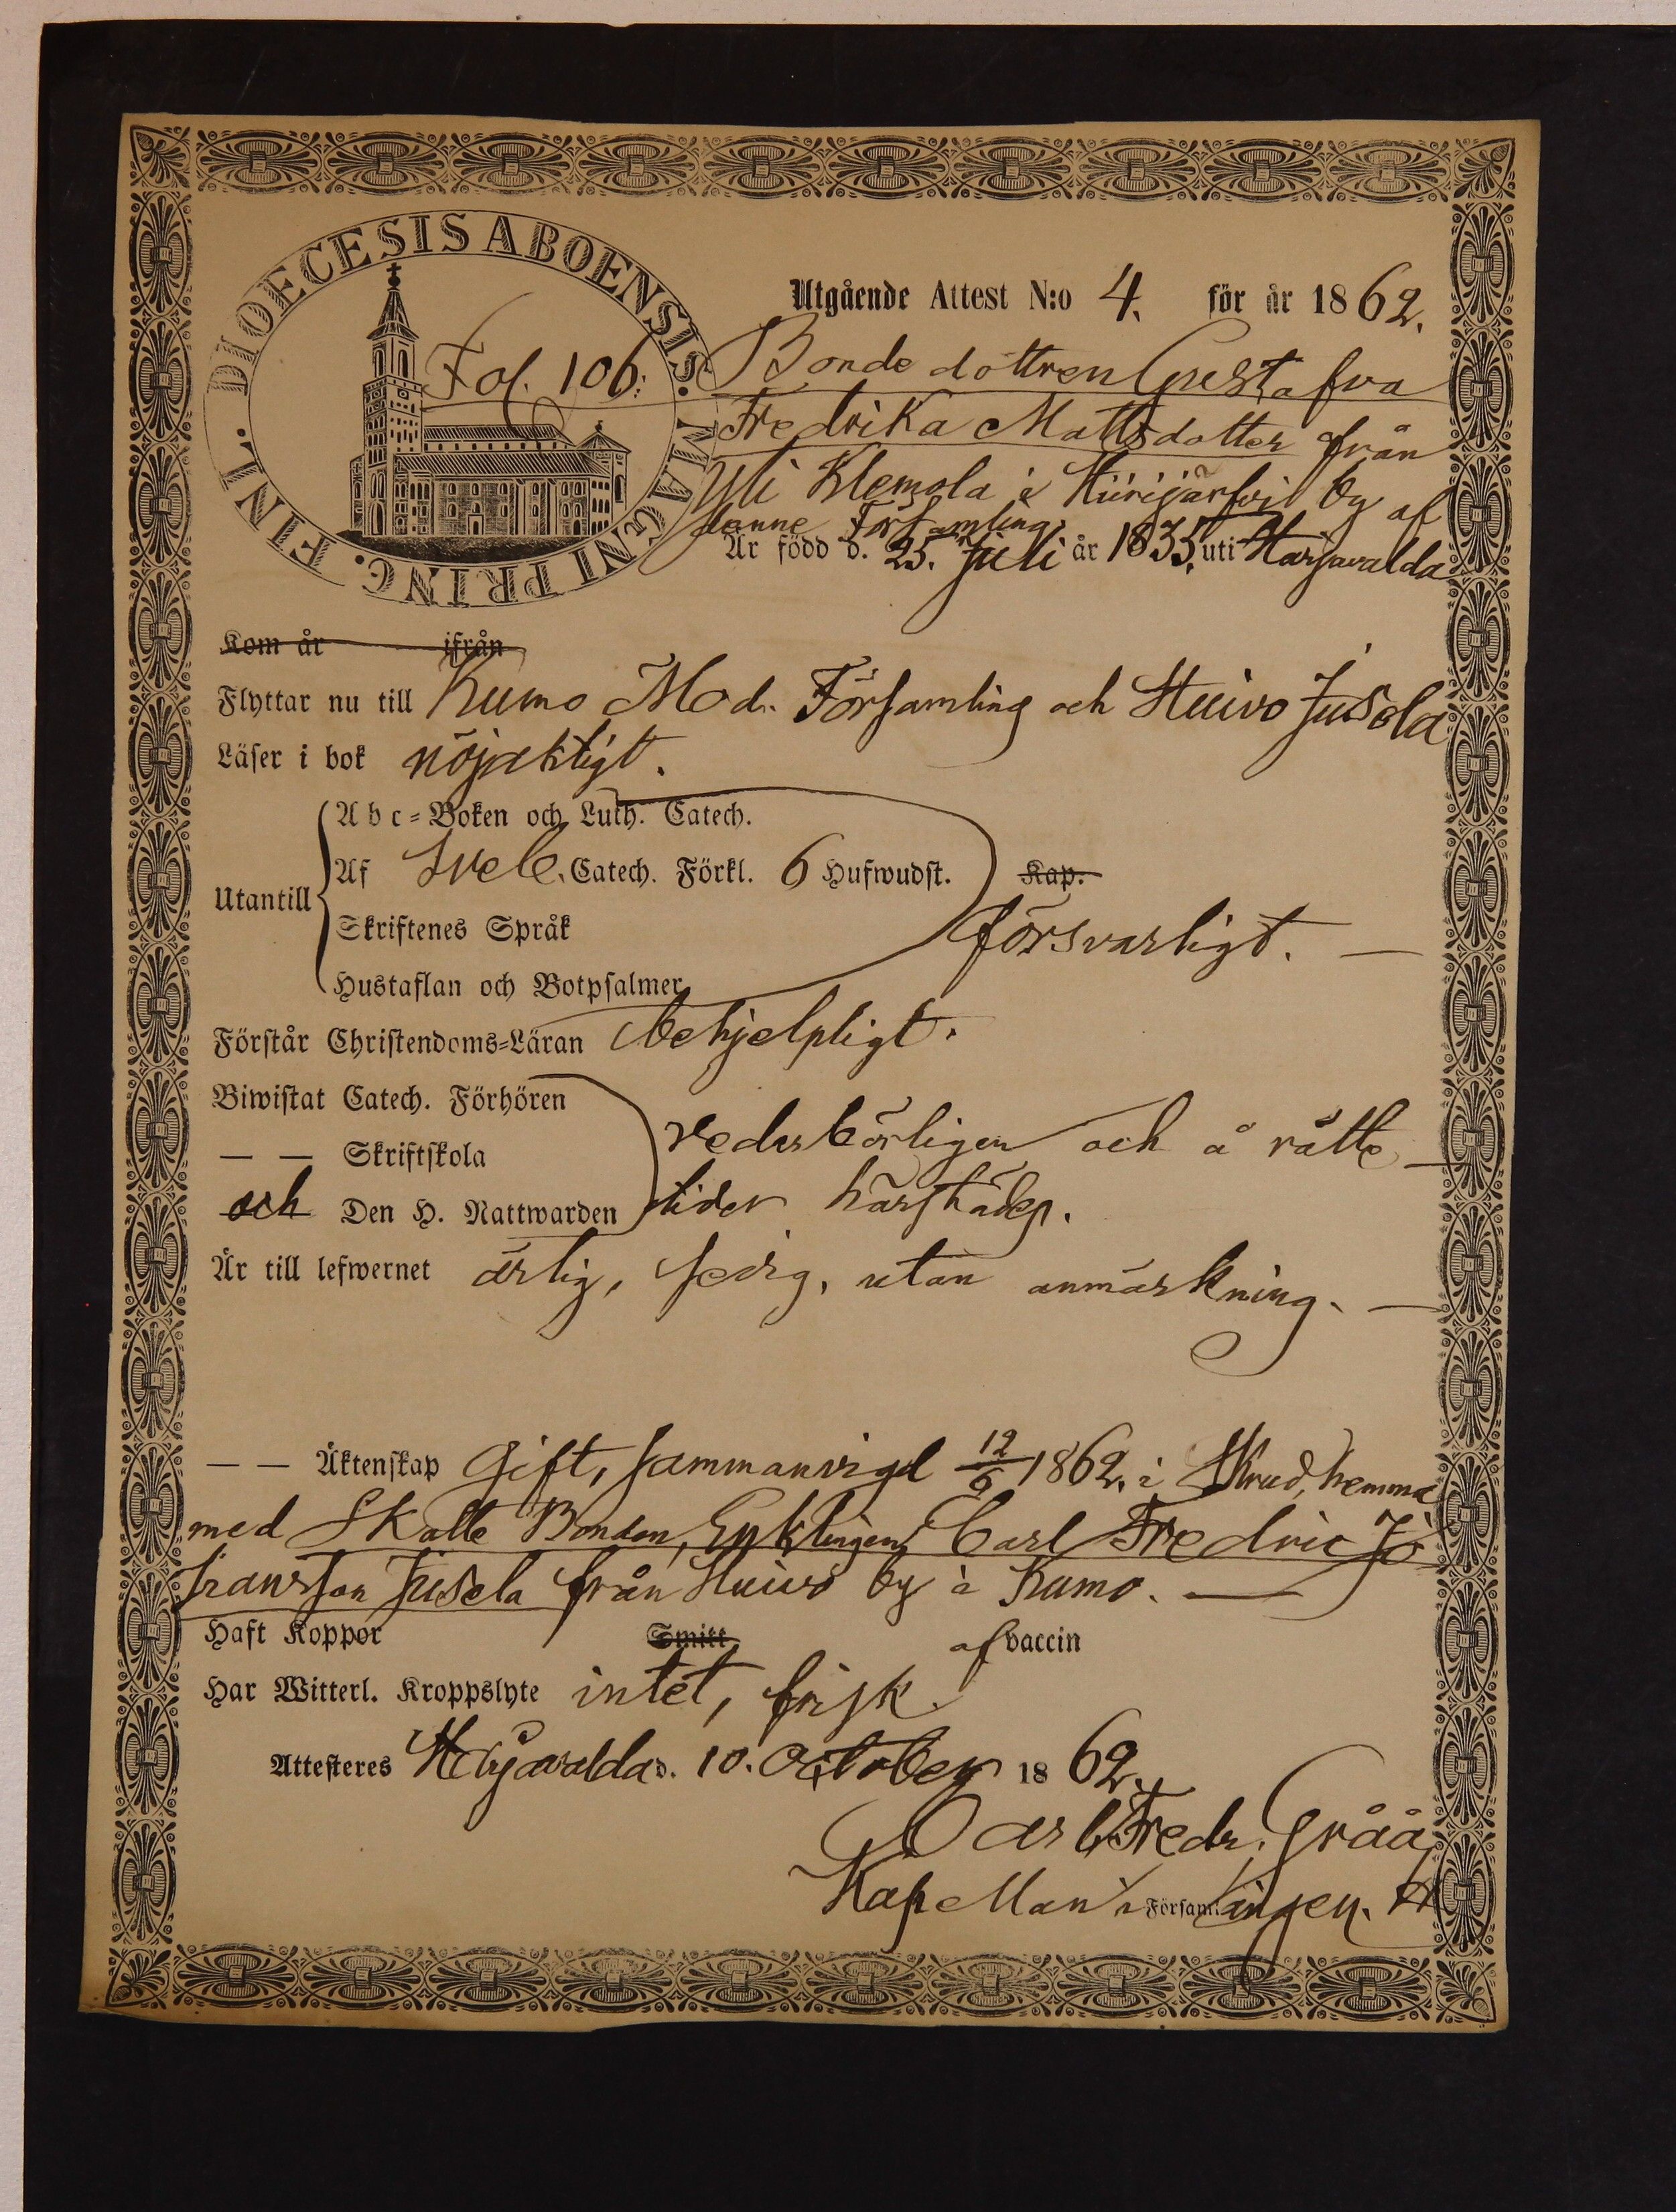 DIOECESIS ABOENSIS. MAGNI PRINC. FINL.
Fol. 106.
Utgående Attest N:o 4. för år 1862.
Bonde dottren Gustafva
Fredrika Mattsdotter från
Yli Klemola i Hiirijärfvi by af
denne Församling
Är född d. 25. Juli år 1835, uti Harjavalda
Kom år ifrån
Flyttar nu till Kumo Mod. Församling och Huivo Jusela
Läser i bok nöjaktigt.
Abc-Boken och Luth. Catech.
Utantill Af Sveb. Catech. Förkl. 6 Hufwudst. Kap.
Skriftenes Språk försvarligt.
Hustaflan och Botpsalmer
Förstår Christendoms-Läran behjelpligt.
Biwistat Catech. Förhören
— — Skriftskola vederbörligen och å rätte
och Den H. Nattwarden tider härstädes.
Är till lefwernet ärlig, sedig, utan anmärkning.
— — Äktenskap Gift, sammanvigd 12/6 1862, i brud hemmet
med Skatte Bonden, Enklingen Carl Fredric Jo
hansson Jusela från Huivo by i Kumo.
Haft Koppor Smitt af vaccin
Har Witterl. Kroppslyte intet, frisk.
Attesteres Harjavalda d. 10. October 1862.
Carl Fredr. Gråå
Kapellan i Församlingen.